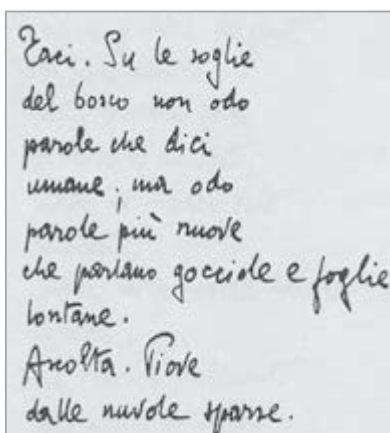 Taci. Su le soglie
del bosco non odo
parole che dici
umane; ma odo
parole più nuove
che parlano gocciole e foglie
lontane.
Ascolta. Piove
dalle nuvole sparse.